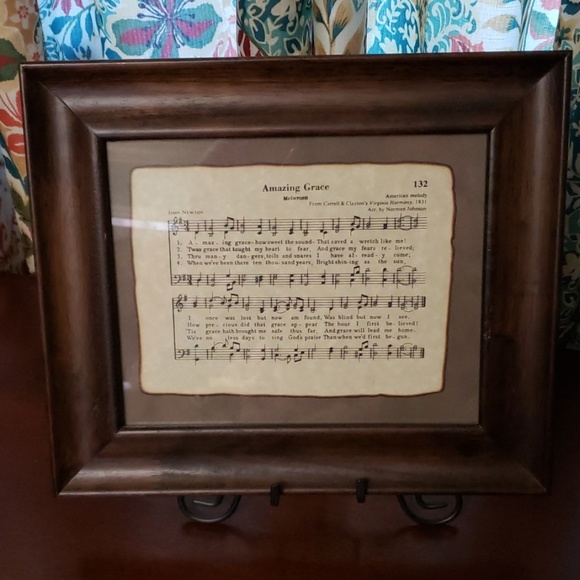 Amazing Grace 132
McIntosh American melody
From Carrell & Clayton's Virginia Harmony, 1831
John Newton Arr. by Norman Johnson
1. A - maz - ing grace- how sweet the sound- That saved a wretch like me!
2. 'Twas grace that taught my heart to fear, And grace my fears re - lieved;
3. Thru man - y dan - gers, toils and snares I have al - read - y come;
4. When we've been there ten thou - sand years, Bright shin - ing as the sun,
I once was lost but now am found, Was blind but now I see.
How pre - cious did that grace ap - pear The hour I first be - lieved!
'Tis grace hath brought me safe thus far, And grace will lead me home.
We've no less days to sing God's praise Than when we'd first be - gun.